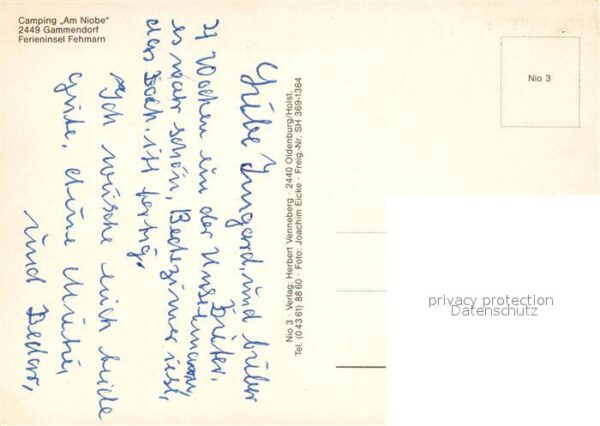 Camping „Am Niobe"
2449 Gammendorf
Ferieninsel Fehmarn
Liebe Irmgard, und lieber
Dieter.
4 Wochen in der
es war schön, Badezimmer
das Dach ist fertig.
Ich wüsche euch beide
Gute, eure
und
Nio 3 · Verlag: Herbert Venneberg · 2440 Oldenburg/Holst.
Tel. (0 43 61) 88 60 · Foto: Joachim Eicke · Freig.-Nr. SH 369-1364
Nio 3
privacy protection
Datenschutz